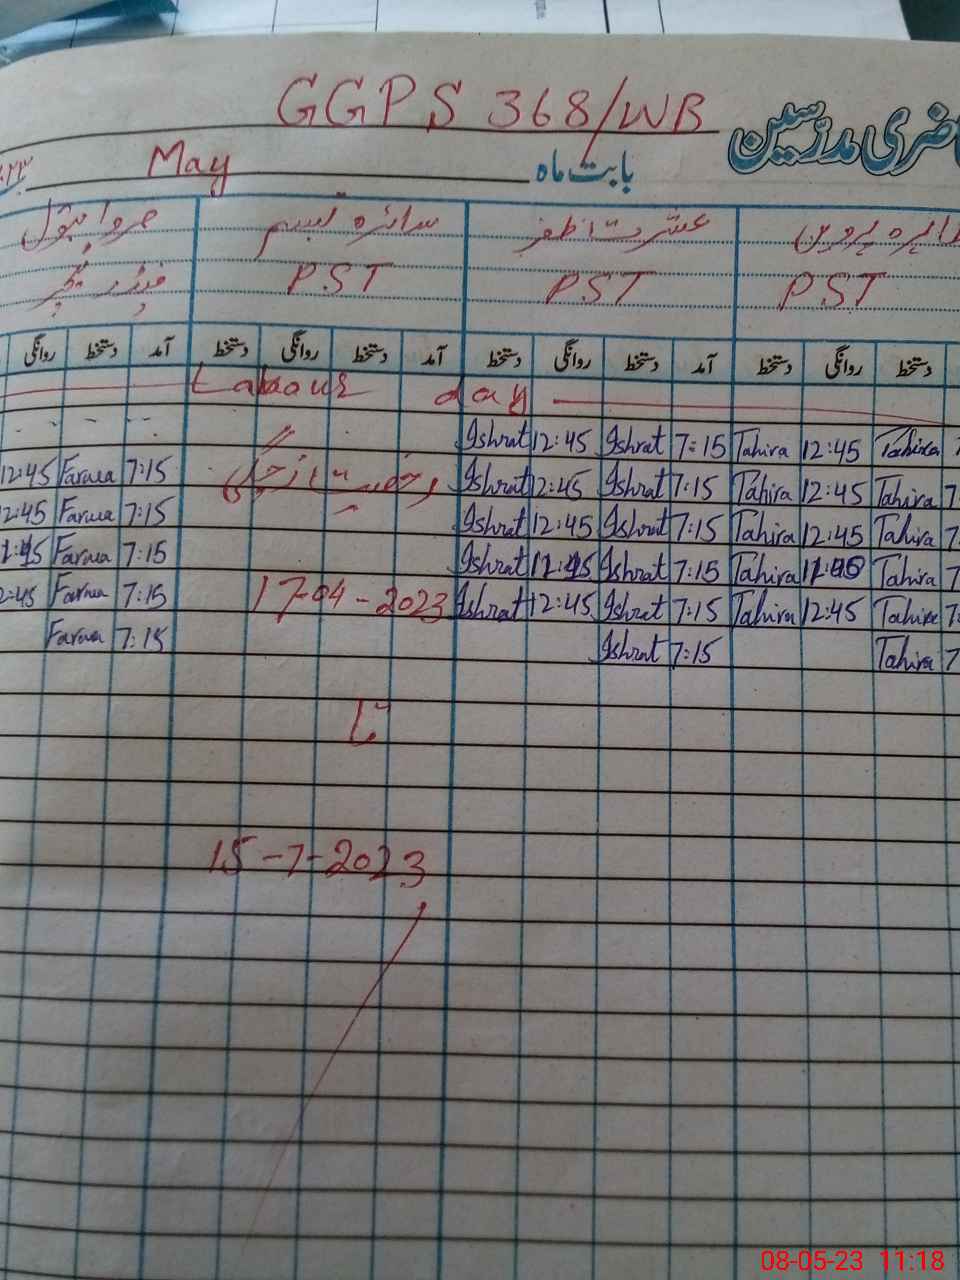 GGPS 368/WB
حاضری مدرسین
بابت ماہ May
طاہرہ پروین عشرت اظفر سائرہ تبسم
PST PST PST
دستخط روانگی دستخط آمد دستخط روانگی دستخط آمد دستخط روانگی
Labour day
Ishrat 12:45 Ishrat 7:15 Tahira 12:45 Tahira
12:45 Farwa 7:15 رخصت زچگی Ishrat 12:45 Ishrat 7:15 Tahira 12:45 Tahira
12:45 Farwa 7:15 Ishrat 12:45 Ishrat 7:15 Tahira 12:45 Tahira
Farwa 7:15 Ishrat Ishrat 7:15 Tahira Tahira
Farwa 7:15 17-04-2023 Ishrat 12:45 Ishrat 7:15 Tahira 12:45 Tahira
Farwa 7:15 Ishrat 7:15 Tahira
تا
15-7-2023
08-05-23 11:18